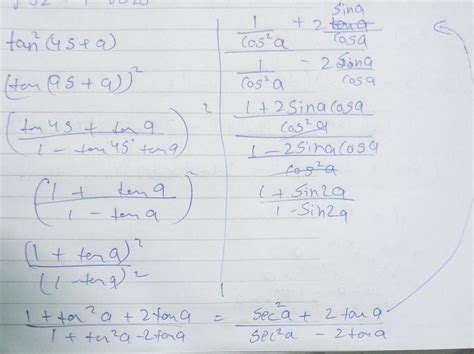 tan²(45+a)
(tan(45+a))²
((tan45 + tan a)/(1 - tan45° tan a))²
((1 + tan a)/(1 - tan a))²
(1 + tan a)²/(1 - tan a)²
(1 + tan²a + 2tan a)/(1 + tan²a - 2tan a) = (sec²a + 2tan a)/(sec²a - 2tan a)
1/cos²a + 2 sina/cosa
1/cos²a - 2 sina/cosa
1 + 2sinacosa
cos²a
1 - 2sinacosa
cos²a
1 + sin2a
1 - sin2a